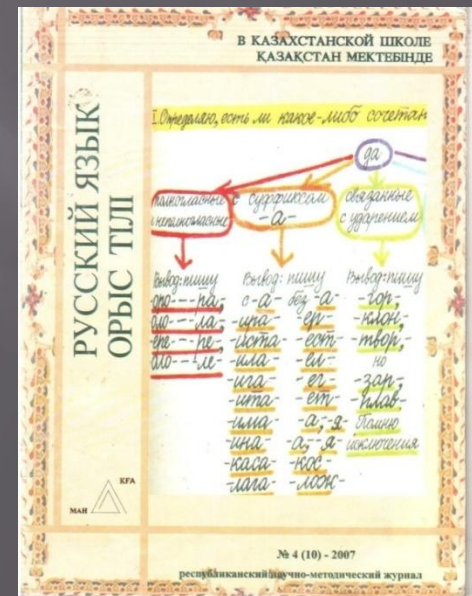 В КАЗАХСТАНСКОЙ ШКОЛЕ
ҚАЗАҚСТАН МЕКТЕБІНДЕ
РУССКИЙ ЯЗЫК
ОРЫС ТІЛІ
I. Определяю, есть ли какое-либо сочетан
да
полногласные
и неполногласные
с суффиксом
-а-
связанные
с ударением
Вывод: пишу
-оро- - -ра-,
-оло- - -ла-
-ере- - -ре-,
-оло- - -ле-
Вывод: пишу
с -а- без -а-
-ира- -ер-
-иста- -ест-
-ила- -ел-
-ига- -ег-
-ита- -ет-
-има- -а-, -я-
-ина- -а-, -я-
-каса- -кос-
-лага- -лож-
Вывод: пишу
-гор-,
-клон-,
-твор-,
но
-зар-,
-плав-
Помню
исключения
МАН
КҒА
№ 4 (10) - 2007
республиканский научно-методический журнал